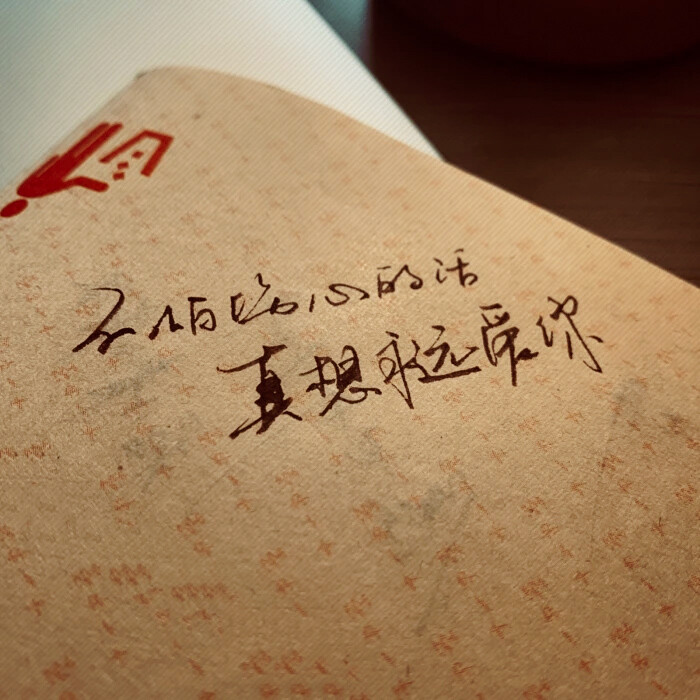 不怕心的话
真想永远爱你